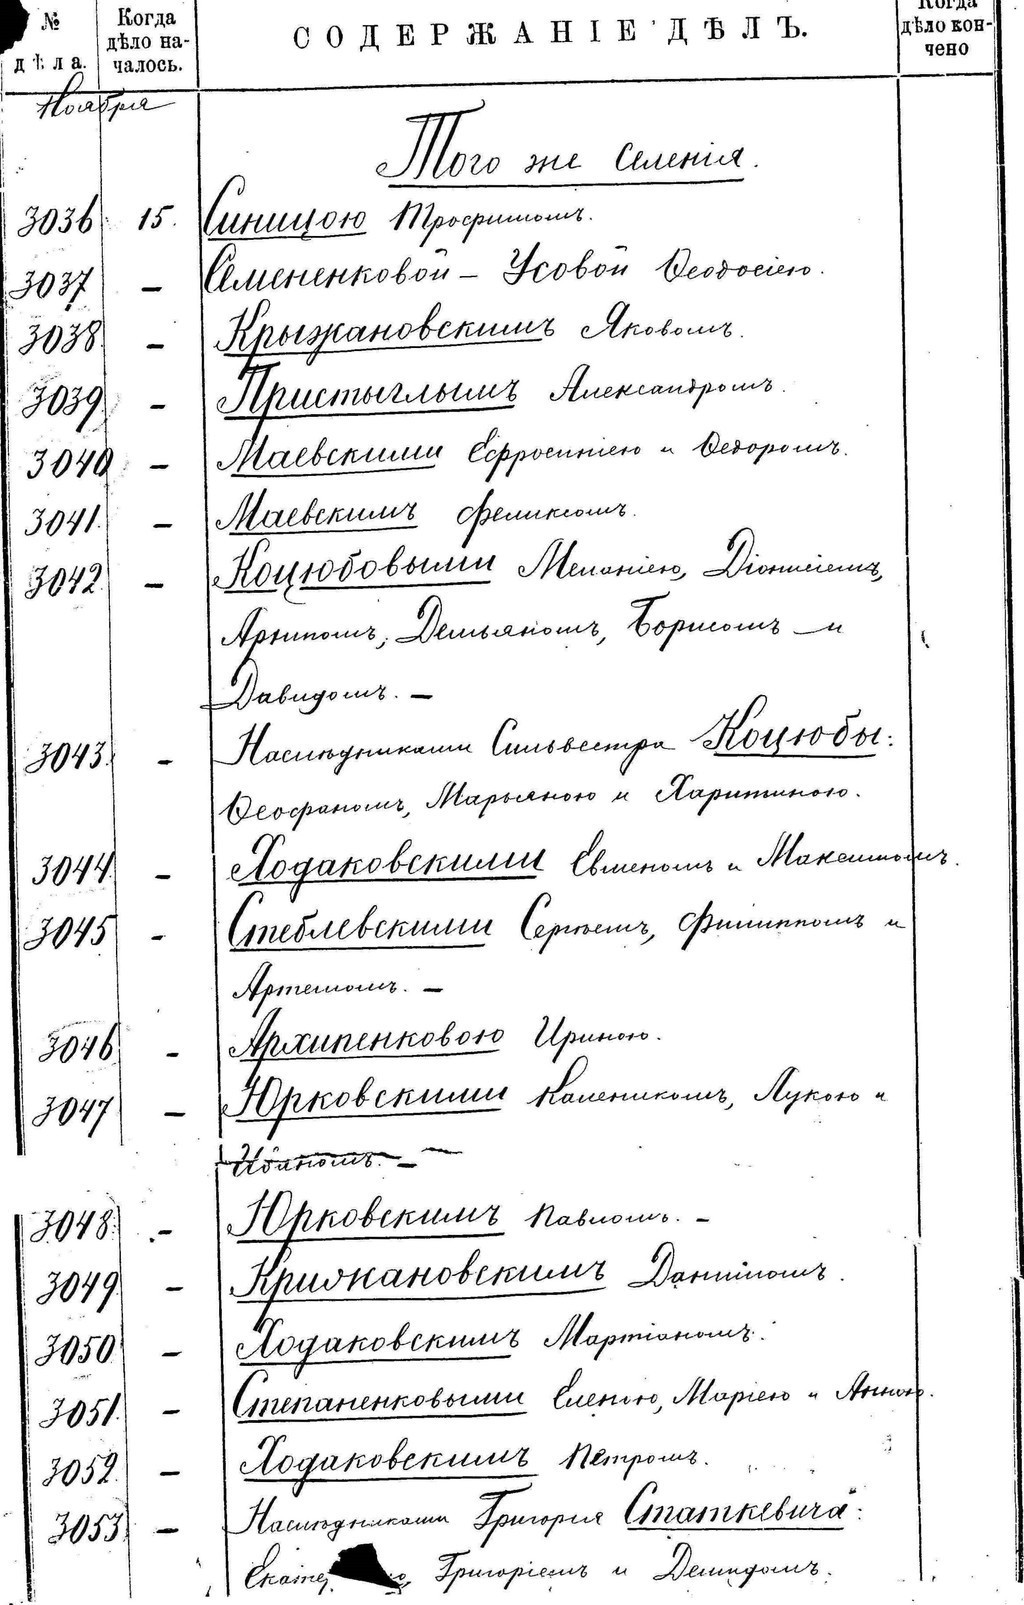 № дѣла.
Когда дѣло началось.
СОДЕРЖАНІЕ ДѢЛЪ.
Когда дѣло кончено
Ноября
Того же селенія.
3036 15. Синицою Трофимомъ.
3037 — Семененковой — Усовой Ѳеодосіею.
3038 — Крыжановскимъ Яковомъ.
3039 — Пристыглымъ Александромъ.
3040 — Маевскими Ефросиніею и Ѳедоромъ.
3041. — Маевскимъ Феликсомъ.
3042 — Коцюбовыми Меланіею, Діонисіемъ,
Архипомъ, Демьяномъ, Борисомъ и
Давидомъ. —
3043. — Наслѣдниками Сильвестра Коцюбы:
Ѳеофаномъ, Марьяною и Харитиною.
3044. — Ходаковскими Евменомъ и Максимомъ.
3045 — Стеблевскими Сергѣемъ, Филиппомъ и
Артемомъ. —
3046 — Архипенковою Ириною.
3047 — Юрковскими Калеником, Лукою и
Иваномъ. —
3048. — Юрковскимъ Павломъ. —
3049 — Крижановскимъ Даніиломъ.
3050 — Ходаковскимъ Мартіаномъ.
3051. — Степаненковыми Еленою, Маріею и Анною.
3052. — Ходаковскимъ Петромъ.
3053 — Наслѣдниками Григорія Статкевича:
Григоріемъ и Демидомъ.